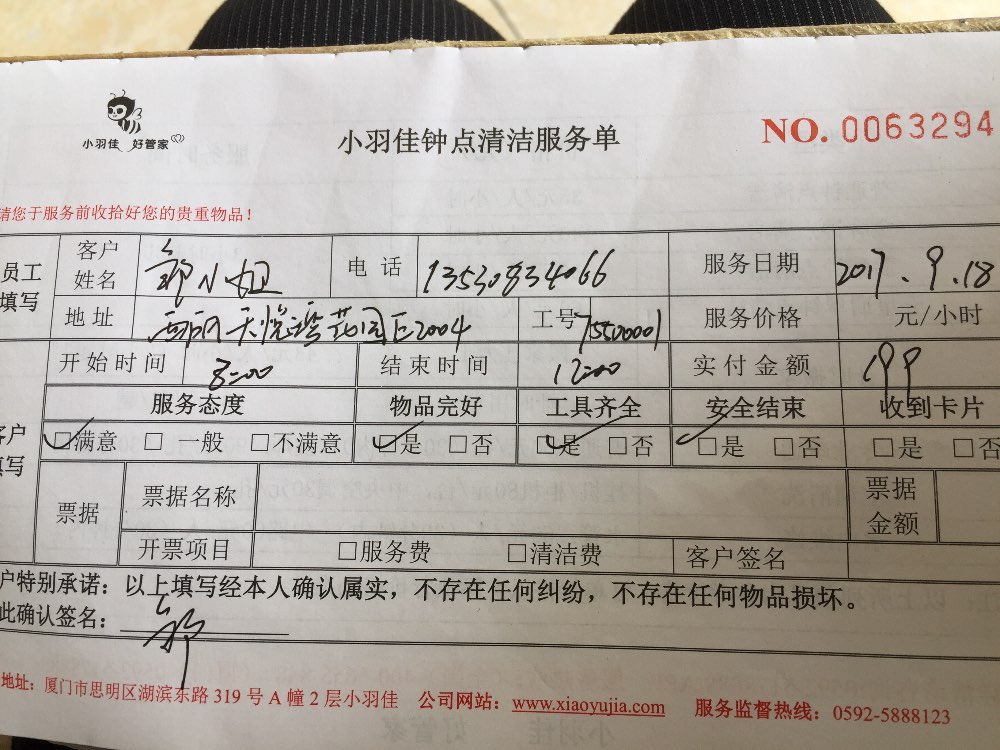 小羽佳 好管家
小羽佳钟点清洁服务单
NO. 0063294
请您于服务前收拾好您的贵重物品！
员工填写 客户姓名 郭小姐 电话 13530834066 服务日期 2017.9.18
地址 西丽天悦湾花园E2004 工号 75500001 服务价格 元/小时
开始时间 8:00 结束时间 12:00 实付金额 199
客户填写 服务态度 物品完好 工具齐全 安全结束 收到卡片
☑满意 □一般 □不满意 ☑是 □否 ☑是 □否 ☑是 □否 □是 □否
票据 票据名称 票据金额
开票项目 □服务费 □清洁费 客户签名
户特别承诺：以上填写经本人确认属实，不存在任何纠纷，不存在任何物品损坏。
此确认签名：
地址：厦门市思明区湖滨东路 319 号 A 幢 2 层小羽佳 公司网站：www.xiaoyujia.com 服务监督热线：0592-5888123